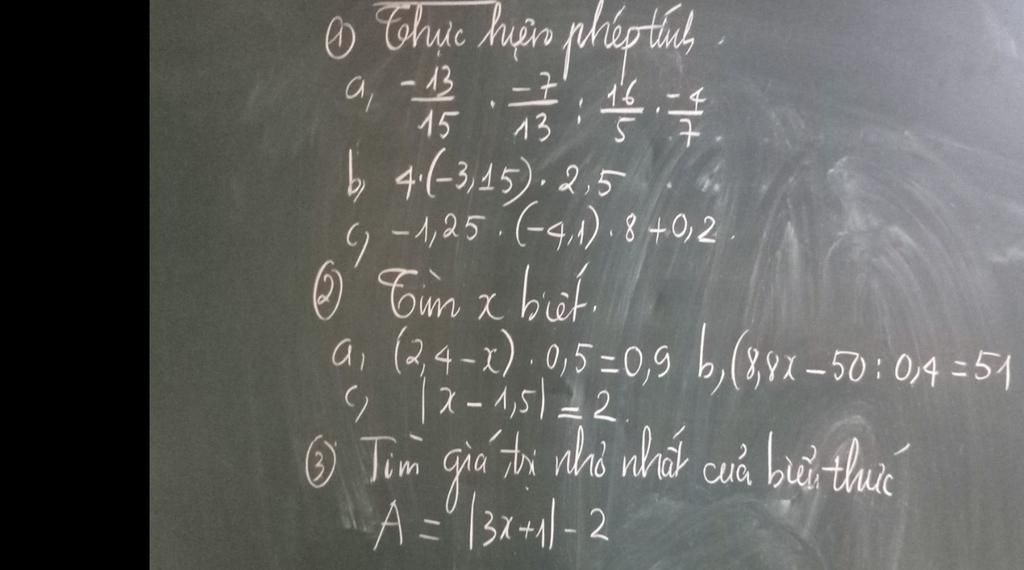 ① Thực hiện phép tính.
a, -13/15 . -7/13 : 16/5 . -4/7
b, 4.(-3,15). 2,5
c, -1,25 . (-4,1) . 8 + 0,2.
② Tìm x biết.
a, (2,4-x) . 0,5 = 0,9 b, (8,8x - 50 : 0,4 = 51
c, |x - 1,5| = 2.
③ Tìm giá trị nhỏ nhất cuả biểu thức
A = |3x+1| - 2